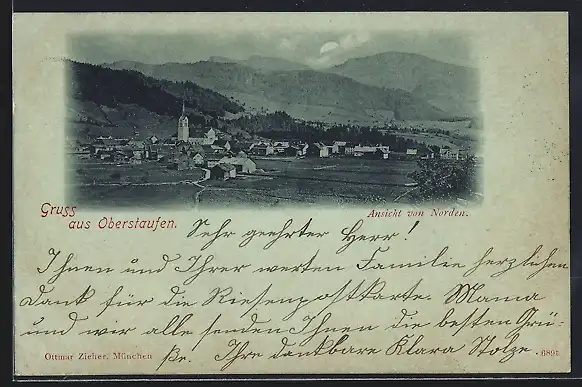 Gruss
aus Oberstaufen.
Ansicht von Norden.
Sehr geehrter Herr!
Ihnen und Ihrer werten Familie herzlichen
Dank für die Riesenpostkarte. Mama
und wir alle senden Ihnen die besten Grü-
ße. Ihre dankbare Klara Stolze
Ottmar Zieher, München
6891